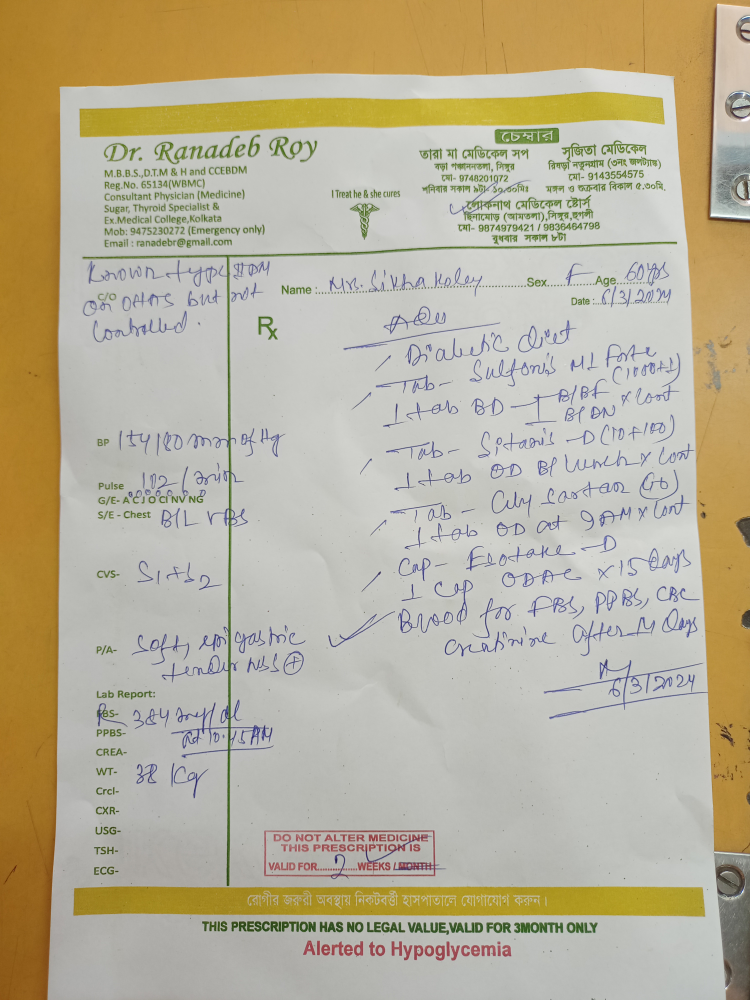 Dr. Ranadeb Roy
M.B.B.S.,D.T.M & H and CCEBDM
Reg.No. 65134(WBMC)
Consultant Physician (Medicine)
Sugar, Thyroid Specialist &
Ex.Medical College,Kolkata
Mob: 9475230272 (Emergency only)
Email : ranadebr@gmail.com
I Treat he & she cures
চেম্বার
তারা মা মেডিকেল সপ
বড়া পঞ্চাননতলা, সিঙ্গুর
মো- 9748201072
শনিবার সকাল ৯টা- ১০.৩০মিঃ
সৃজিতা মেডিকেল
রিষড়া নতুনগ্রাম (৩নং জলট্যাঙ্ক)
মো- 9143554575
মঙ্গল ও শুক্রবার বিকাল ৫.৩০মি.
লোকনাথ মেডিকেল ষ্টোর্স
ছিনামোড় (আমতলা),সিঙ্গুর,হুগলী
মো- 9874979421 / 9836464798
বুধবার সকাল ৮টা
Known type II DM
C/O on OHAs but not
controlled.
Name : Mrs. Sikha Koley Sex F Age 60yrs
Date : 6/3/2024
Rx
Adv
Diabetic diet
Tab- Sulfonis M1 Forte
(1000+1)
1 tab BD - 1 B/BF
1 B/DN x cont
Tab- Sitanis-D (10+100)
1 tab OD B/ lunch x cont
Tab- (40)
1 tab OD at 9AM x cont
Cap- Esotake-D
1 cap ODAC x 15 days
Blood for FBS, PPBS, CBC
creatinine after 14 days
6/3/2024
BP 154/80 mm of Hg
Pulse 102/min
G/E- A C J O CI NV NG
S/E - Chest B/L VBS
CVS- S1+S2
P/A- Soft, epigastric
tender
Lab Report:
FBS- R 384 mg/dl
PPBS- at 10.45AM
CREA-
WT- 38 Kg
Crcl-
CXR-
USG-
TSH-
ECG-
DO NOT ALTER MEDICINE
THIS PRESCRIPTION IS
VALID FOR 2 WEEKS / MONTH
রোগীর জরুরী অবস্থায় নিকটবর্ত্তী হাসপাতালে যোগাযোগ করুন।
THIS PRESCRIPTION HAS NO LEGAL VALUE,VALID FOR 3MONTH ONLY
Alerted to Hypoglycemia